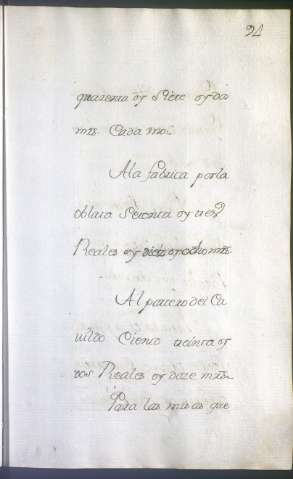 24
quarenta y siete y do
mrs. Cada mo.
A la fabrica por la
oblata Setenta y tres
Reales y diez y ocho mrs
Al portero del Ca
uildo Ciento treinta y
dos Reales y doze mrs.
Para las misas que